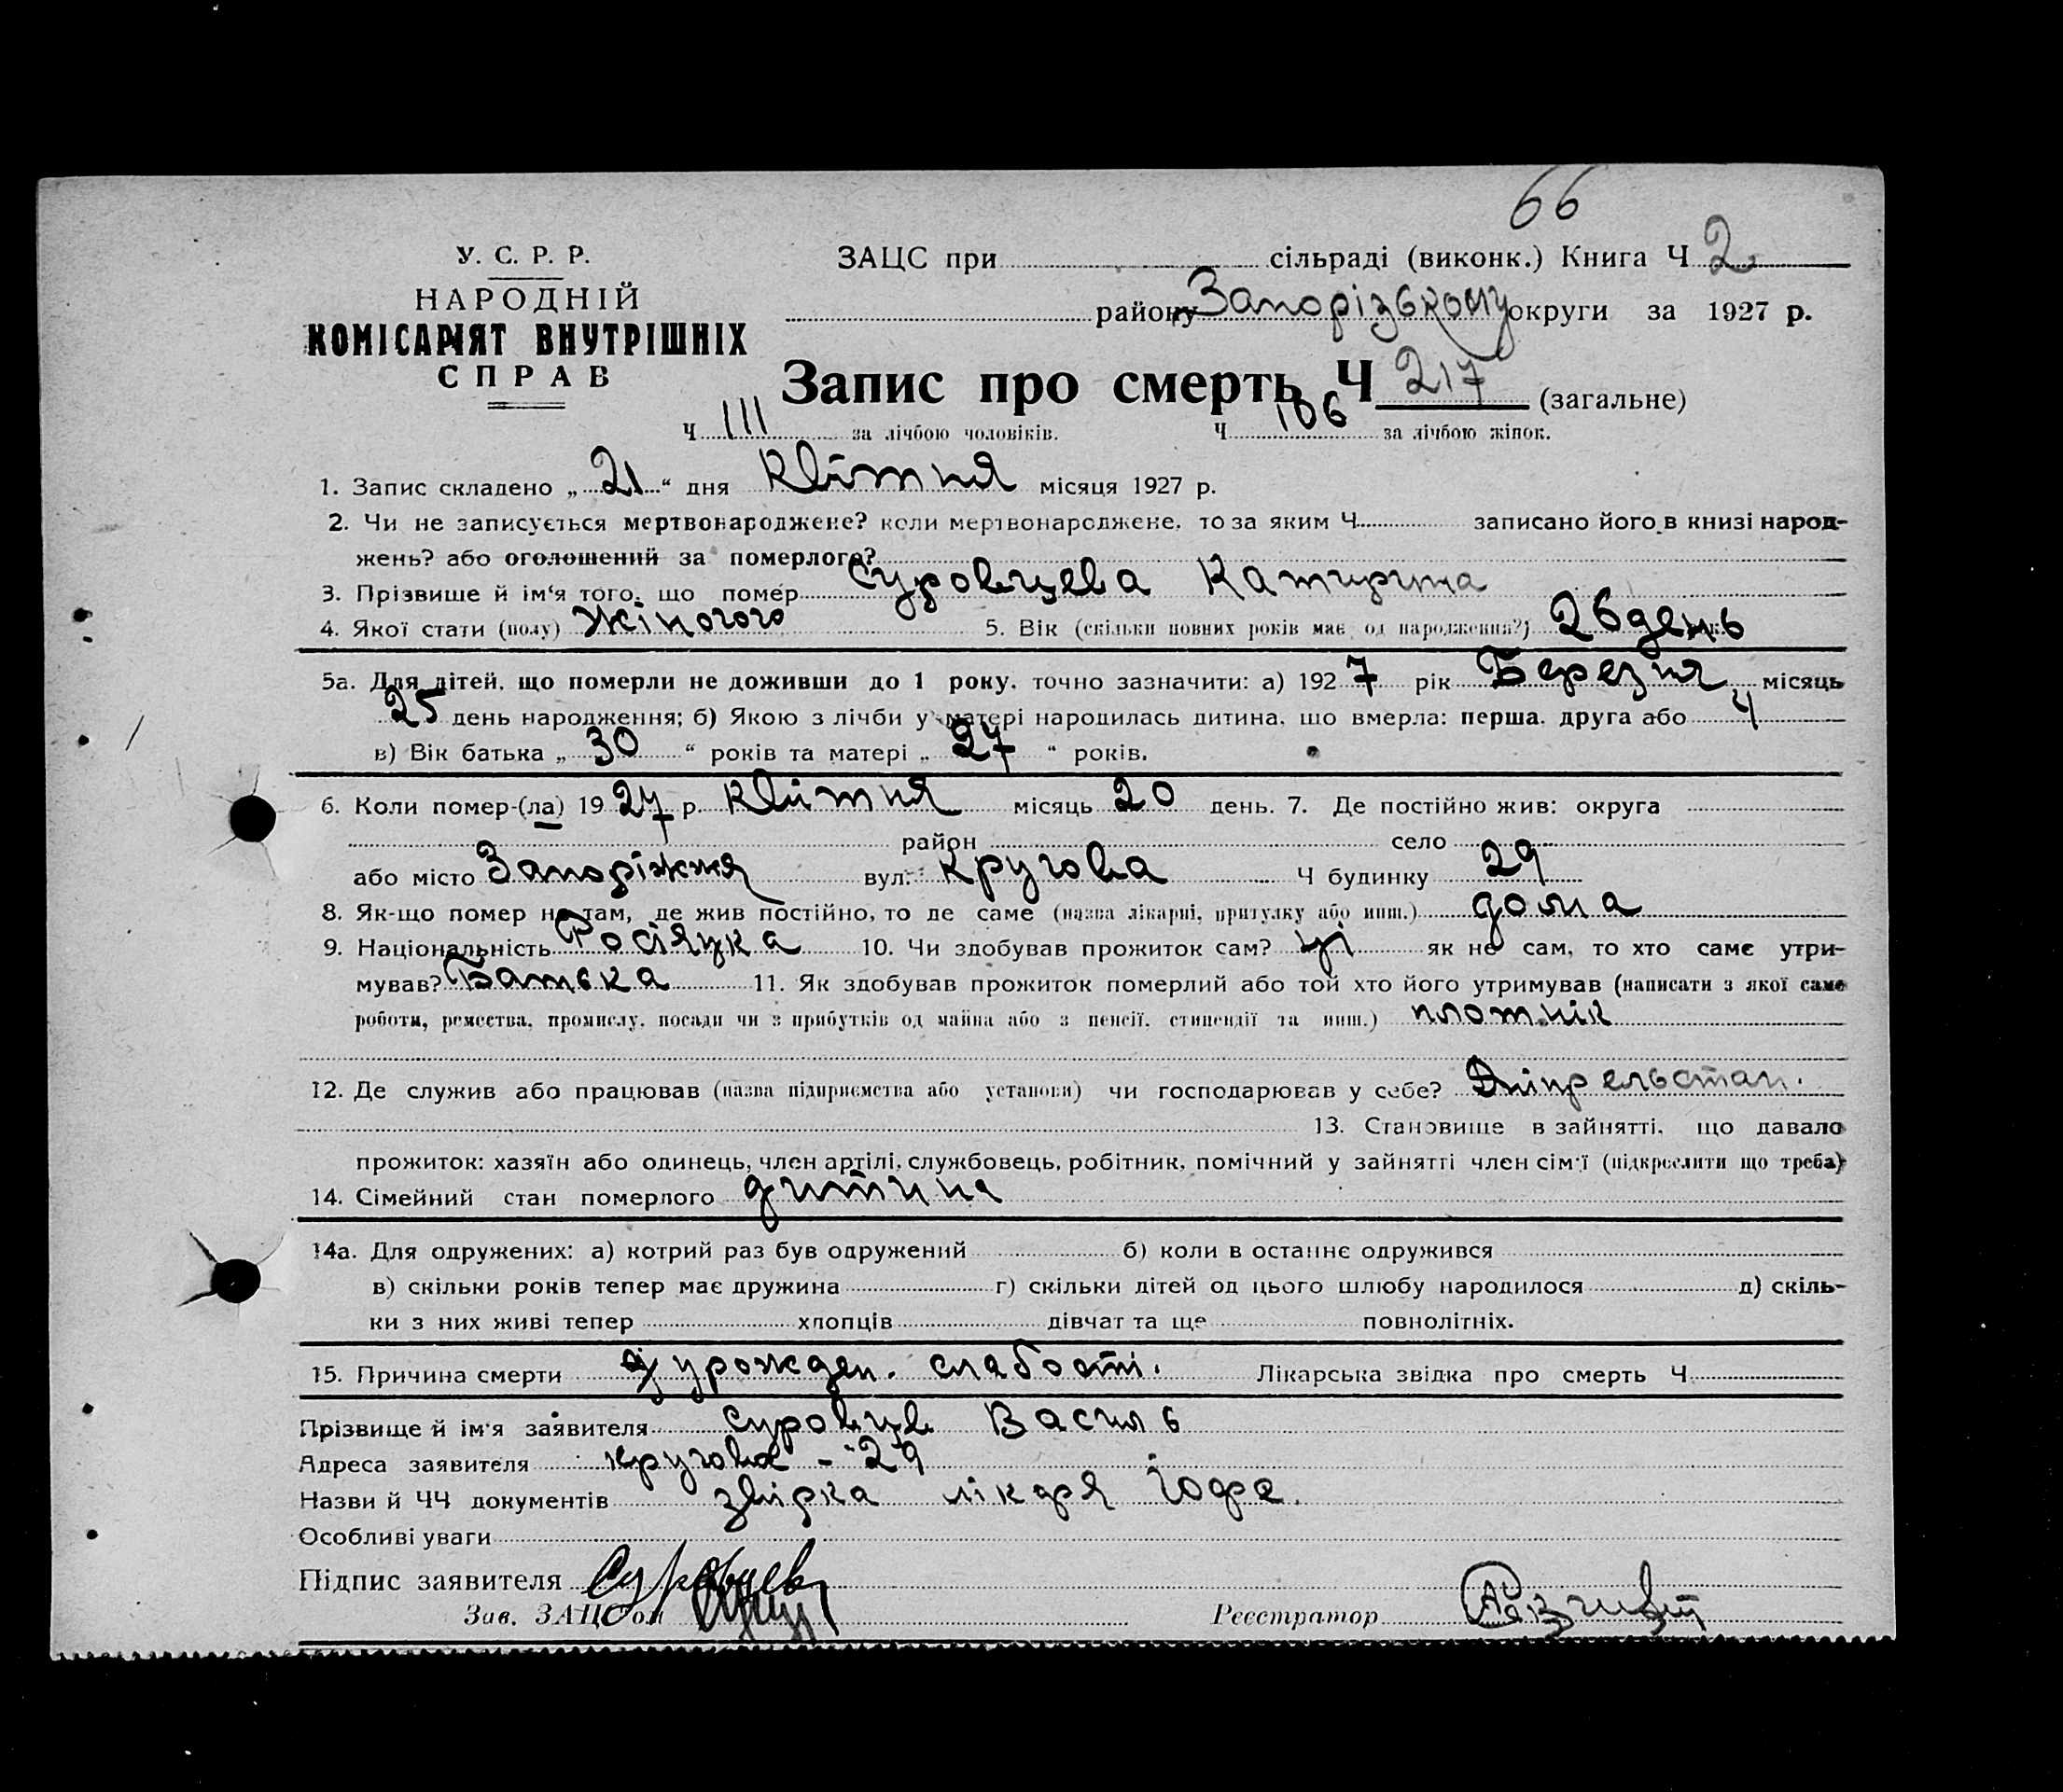 66
У. С. Р. Р.
НАРОДНІЙ
КОМІСАРІЯТ ВНУТРІШНІХ
СПРАВ
ЗАЦС при сільраді (виконк.) Книга Ч 2
району Запорізькому округи за 1927 р.
Запис про смерть Ч 217 (загальне)
Ч 111 за лічбою чоловіків. Ч 106 за лічбою жінок.
1. Запис складено „ 21 “ дня Квітня місяця 1927 р.
2. Чи не записується мертвонароджене? коли мертвонароджене, то за яким Ч. записано його в книзі народ-
жень? або оголошений за померлого?
3. Прізвище й ім‘я того, що помер Суровцева Катирина
4. Якої стати (полу) Жіночого 5. Вік (скільки повних років має од народження?) 26 день
5а. Для дітей, що померли не доживши до 1 року, точно зазначити: а) 1927 рік Березня місяць
25 день народження; б) Якою з лічби у матері народилась дитина, що вмерла: перша, друга або 4
в) Вік батька „ 30 “ років та матері „ 27 “ років.
6. Коли помер-(ла) 1927 р. Квітня місяць 20 день. 7. Де постійно жив: округа
район село
або місто Запоріжжя вул. Кругова Ч будинку 29
8. Як-що помер не там, де жив постійно, то де саме (назва лікарні, притулку або инш.) дома
9. Національність Росіяцка 10. Чи здобував прожиток сам? ні як не сам, то хто саме утри-
мував? Батька 11. Як здобував прожиток померлий або той хто його утримував (написати з якої саме
роботи, ремества, промислу, посади чи з прибутків од майна або з пенсії, стипендії та инш.) плотнік
12. Де служив або працював (назва підприємства або установи) чи господарював у себе? Дніпрельстан.
13. Становище в зайнятті, що давало
прожиток: хазяїн або одинець, член артілі, службовець, робітник, помічний у зайнятті член сім‘ї (підкреслити що треба)
14. Сімейний стан померлого дитина
14а. Для одружених: а) котрий раз був одружений б) коли в останнє одружився
в) скільки років тепер має дружина г) скільки дітей од цього шлюбу народилося д) скіль-
ки з них живі тепер хлопців дівчат та ще повнолітніх.
15. Причина смерти урожден. слабості. Лікарська звідка про смерть Ч.
Прізвище й ім‘я заявителя Суровцев Василь
Адреса заявителя Кругова - 29
Назви й ЧЧ документів звідка лікаря
Особливі уваги
Підпис заявителя Суровцев
Зав. ЗАЦС‘ом
Реєстратор